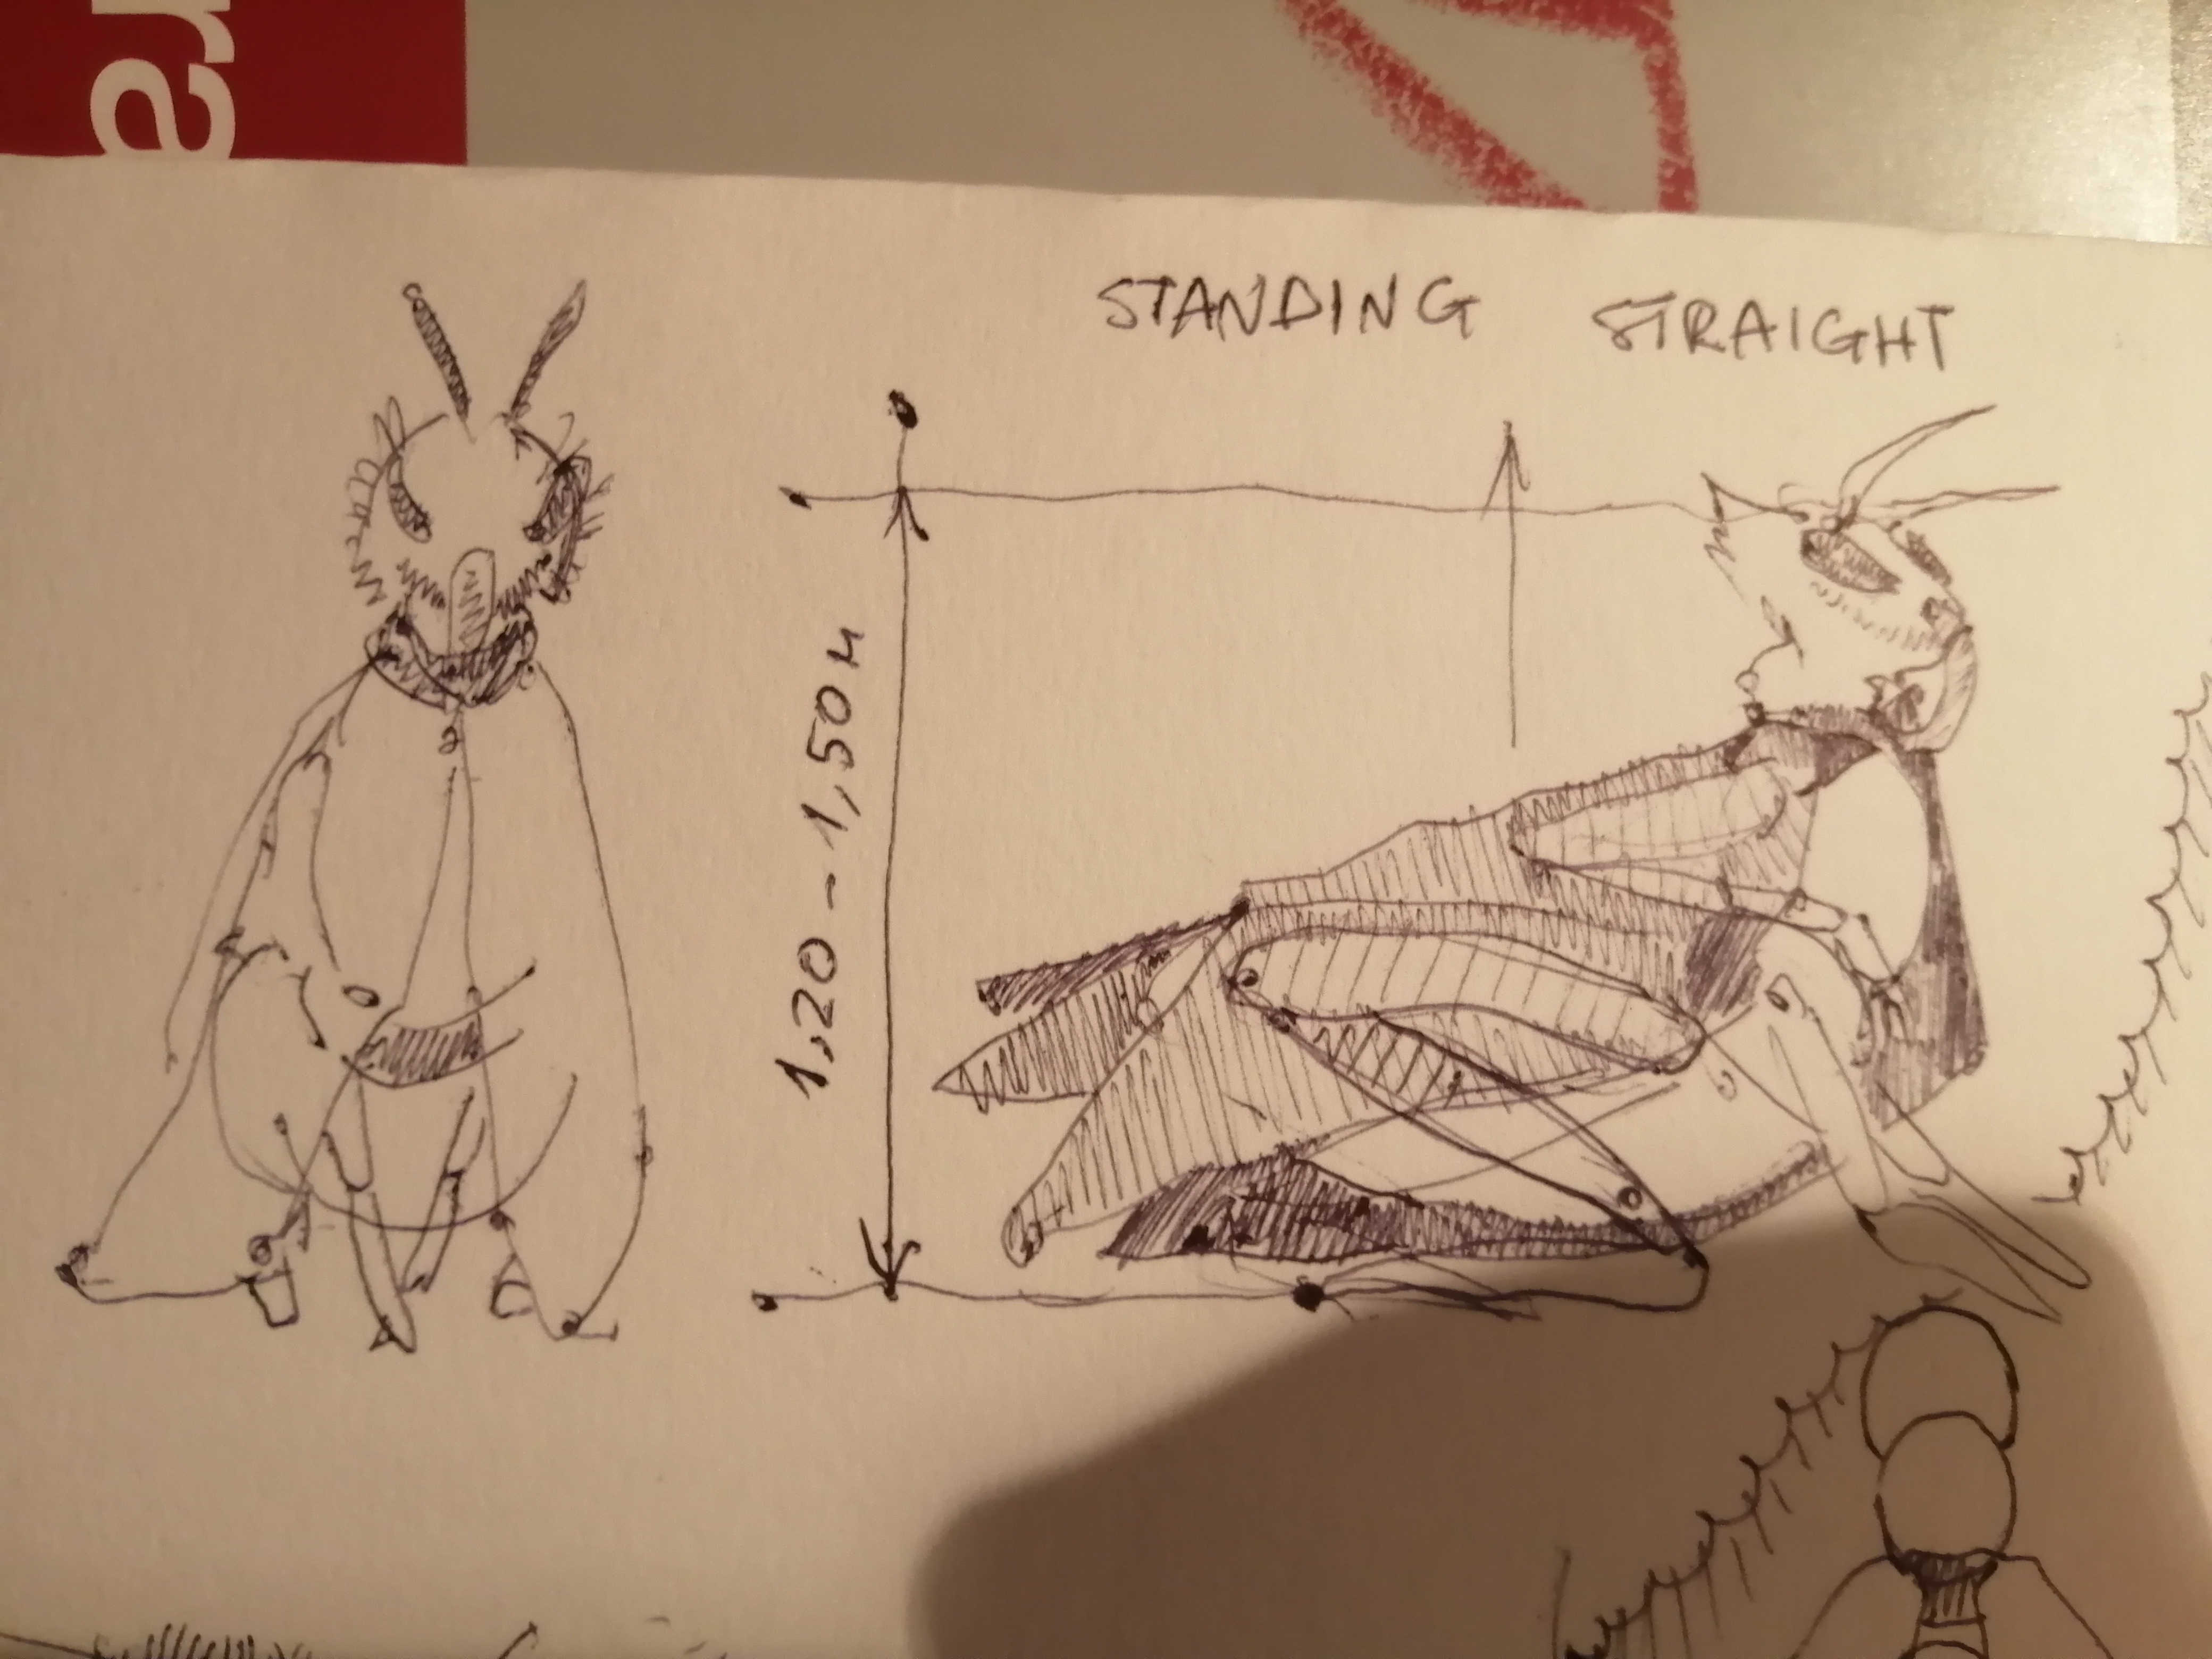 ra
STANDING STRAIGHT
1,20 - 1,50 м